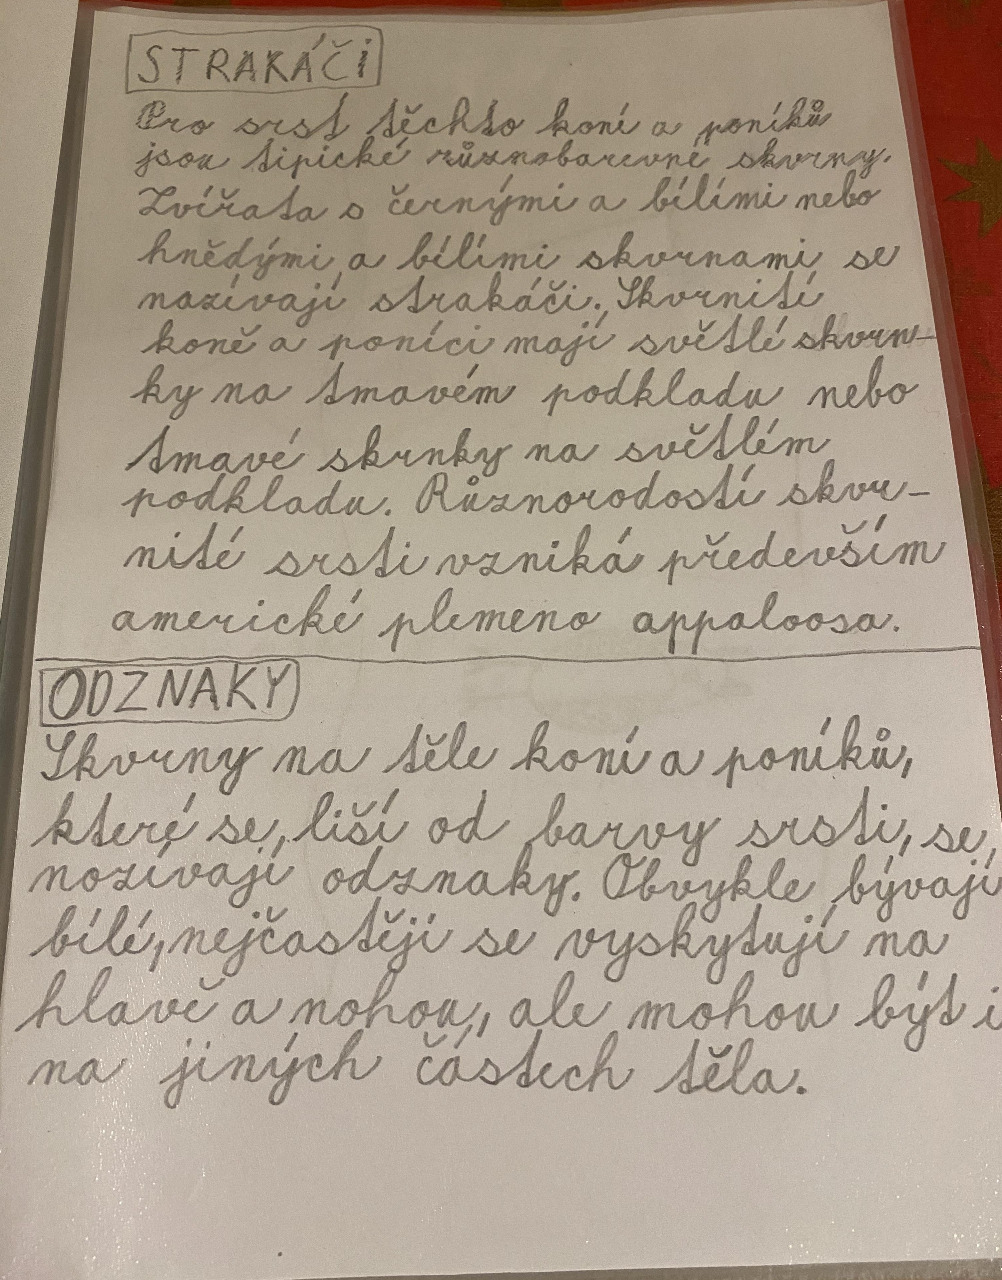 STRAKÁČI
Pro srst těchto koní a poníků
jsou tipické různobarevné skvrny.
Zvířata s černými a bílími nebo
hnědými a bílími skvrnami se
nazívají strakáči. Skvrnití
koně a poníci mají světlé skvrn-
ky na tmavém podkladu nebo
tmavé skrnky na světlém
podkladu. Různorodostí skvr-
nité srsti vzniká především
americké plemeno appaloosa.
ODZNAKY
Skvrny na těle koní a poníků,
které se, liší od barvy srsti, se,
nozívají odznaky. Obvykle bývají
bílé, nejčastěji se vyskytují na
hlavě a nohou, ale mohou být i
na jiných částech těla.